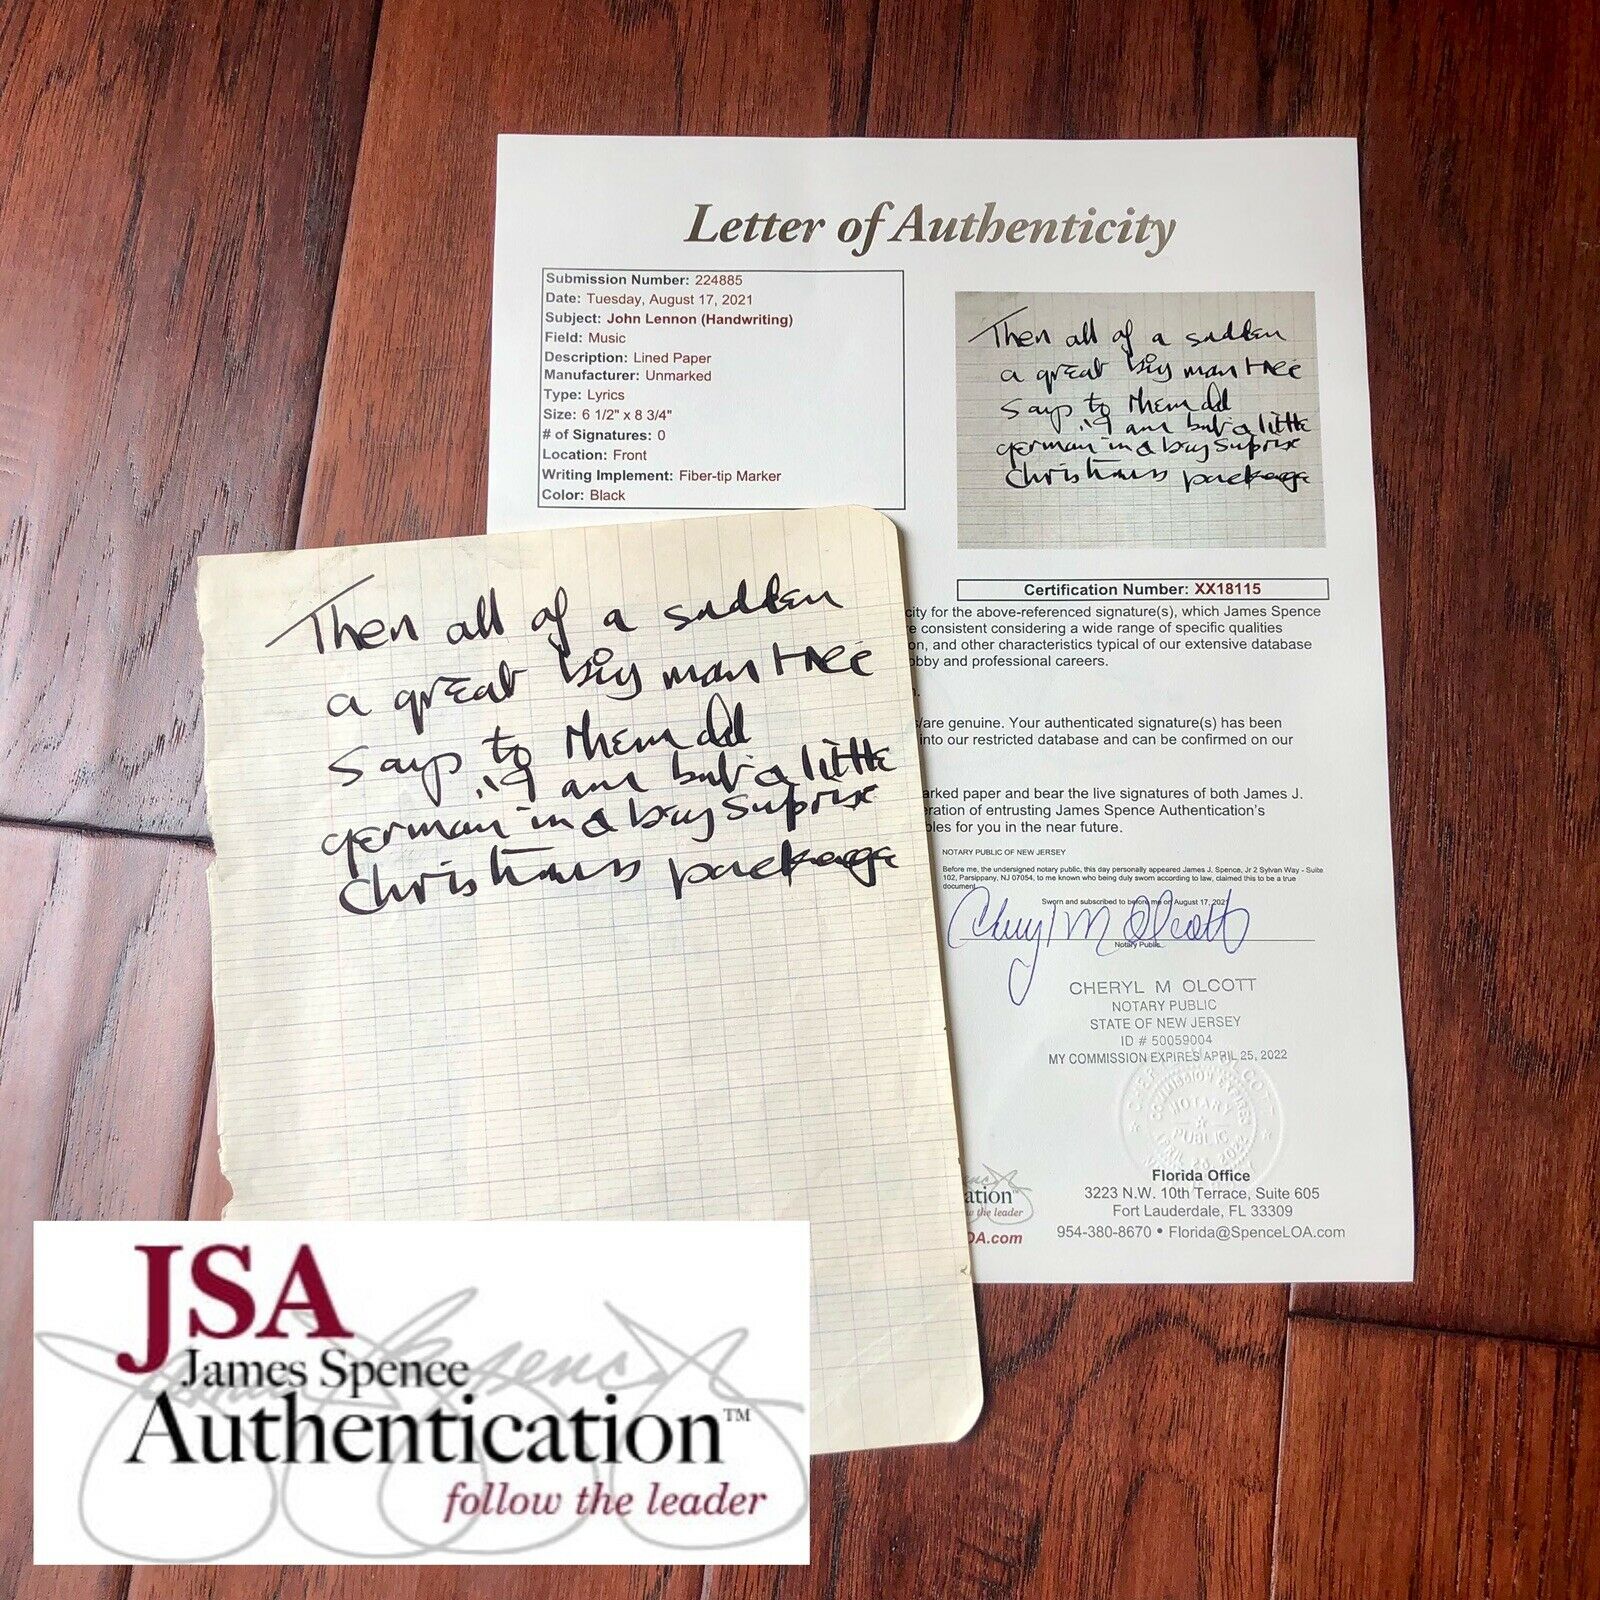 Letter of Authenticity
Submission Number: 224885
Date: Tuesday, August 17, 2021
Subject: John Lennon (Handwriting)
Field: Music
Description: Lined Paper
Manufacturer: Unmarked
Type: Lyrics
Size: 6 1/2" x 8 3/4"
# of Signatures: 0
Location: Front
Writing Implement: Fiber-tip Marker
Color: Black
Then all of a sudden
a great big man tree
says to them all
"I am but a little
german in a big suprise
christmas package
Certification Number: XX18115
city for the above-referenced signature(s), which James Spence
e consistent considering a wide range of specific qualities
on, and other characteristics typical of our extensive database
obby and professional careers.
n.
s/are genuine. Your authenticated signature(s) has been
into our restricted database and can be confirmed on our
arked paper and bear the live signatures of both James J.
eration of entrusting James Spence Authentication's
bles for you in the near future.
NOTARY PUBLIC OF NEW JERSEY
Before me, the undersigned notary public, this day personally appeared James J. Spence, Jr 2 Sylvan Way - Suite
102, Parsippany, NJ 07054, to me known who being duly sworn according to law, claimed this to be a true
document.
Sworn and subscribed to before me on August 17, 2021
Cheryl M Olcott
Notary Public
CHERYL M OLCOTT
NOTARY PUBLIC
STATE OF NEW JERSEY
ID # 50059004
MY COMMISSION EXPIRES APRIL 25, 2022
NOTARY
PUBLIC
Florida Office
3223 N.W. 10th Terrace, Suite 605
Fort Lauderdale, FL 33309
954-380-8670 • Florida@SpenceLOA.com
ation
w the leader
OA.com
Then all of a sudden
a great big man tree
says to them all
"I am but a little
german in a big suprise
christmas package
JSA
James Spence
Authentication™
follow the leader